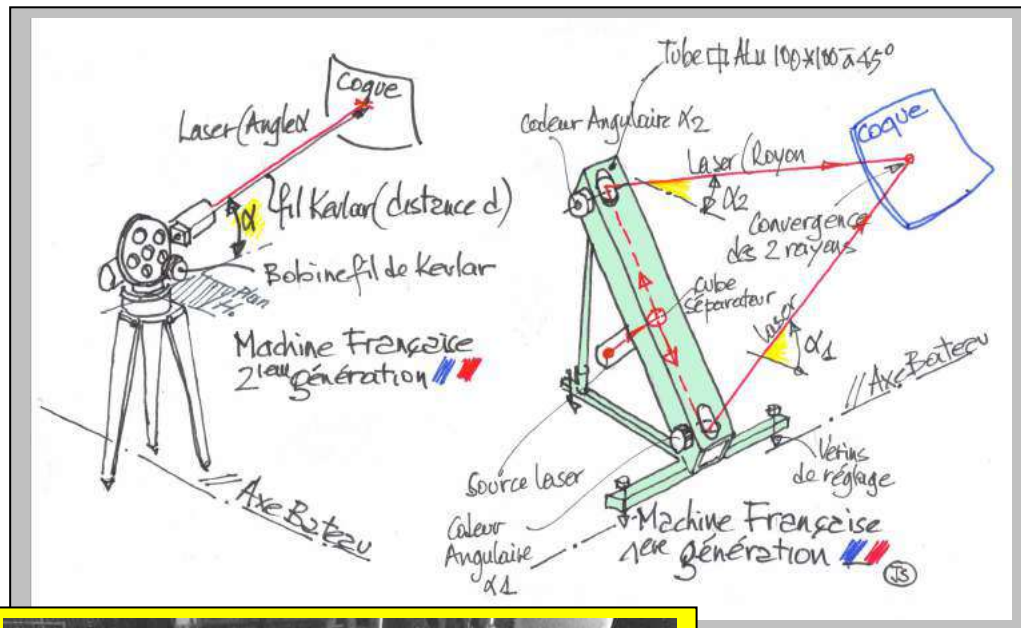 Coque
Laser (Angle α
fil Kevlar (distance d)
α
Bobine fil de Kevlar
Plan
H.
Machine Française
2ieme génération
// Axe Bateau
Tube Alu 100x100 à 45°
Codeur Angulaire α2
Laser (Rayon
coque
α2
Convergence
des 2 rayons
cube
séparateur
Laser
α1
// Axe Bateau
Vérins
de réglage
Source laser
Codeur
Angulaire
α1
Machine Française
1ere génération
JS